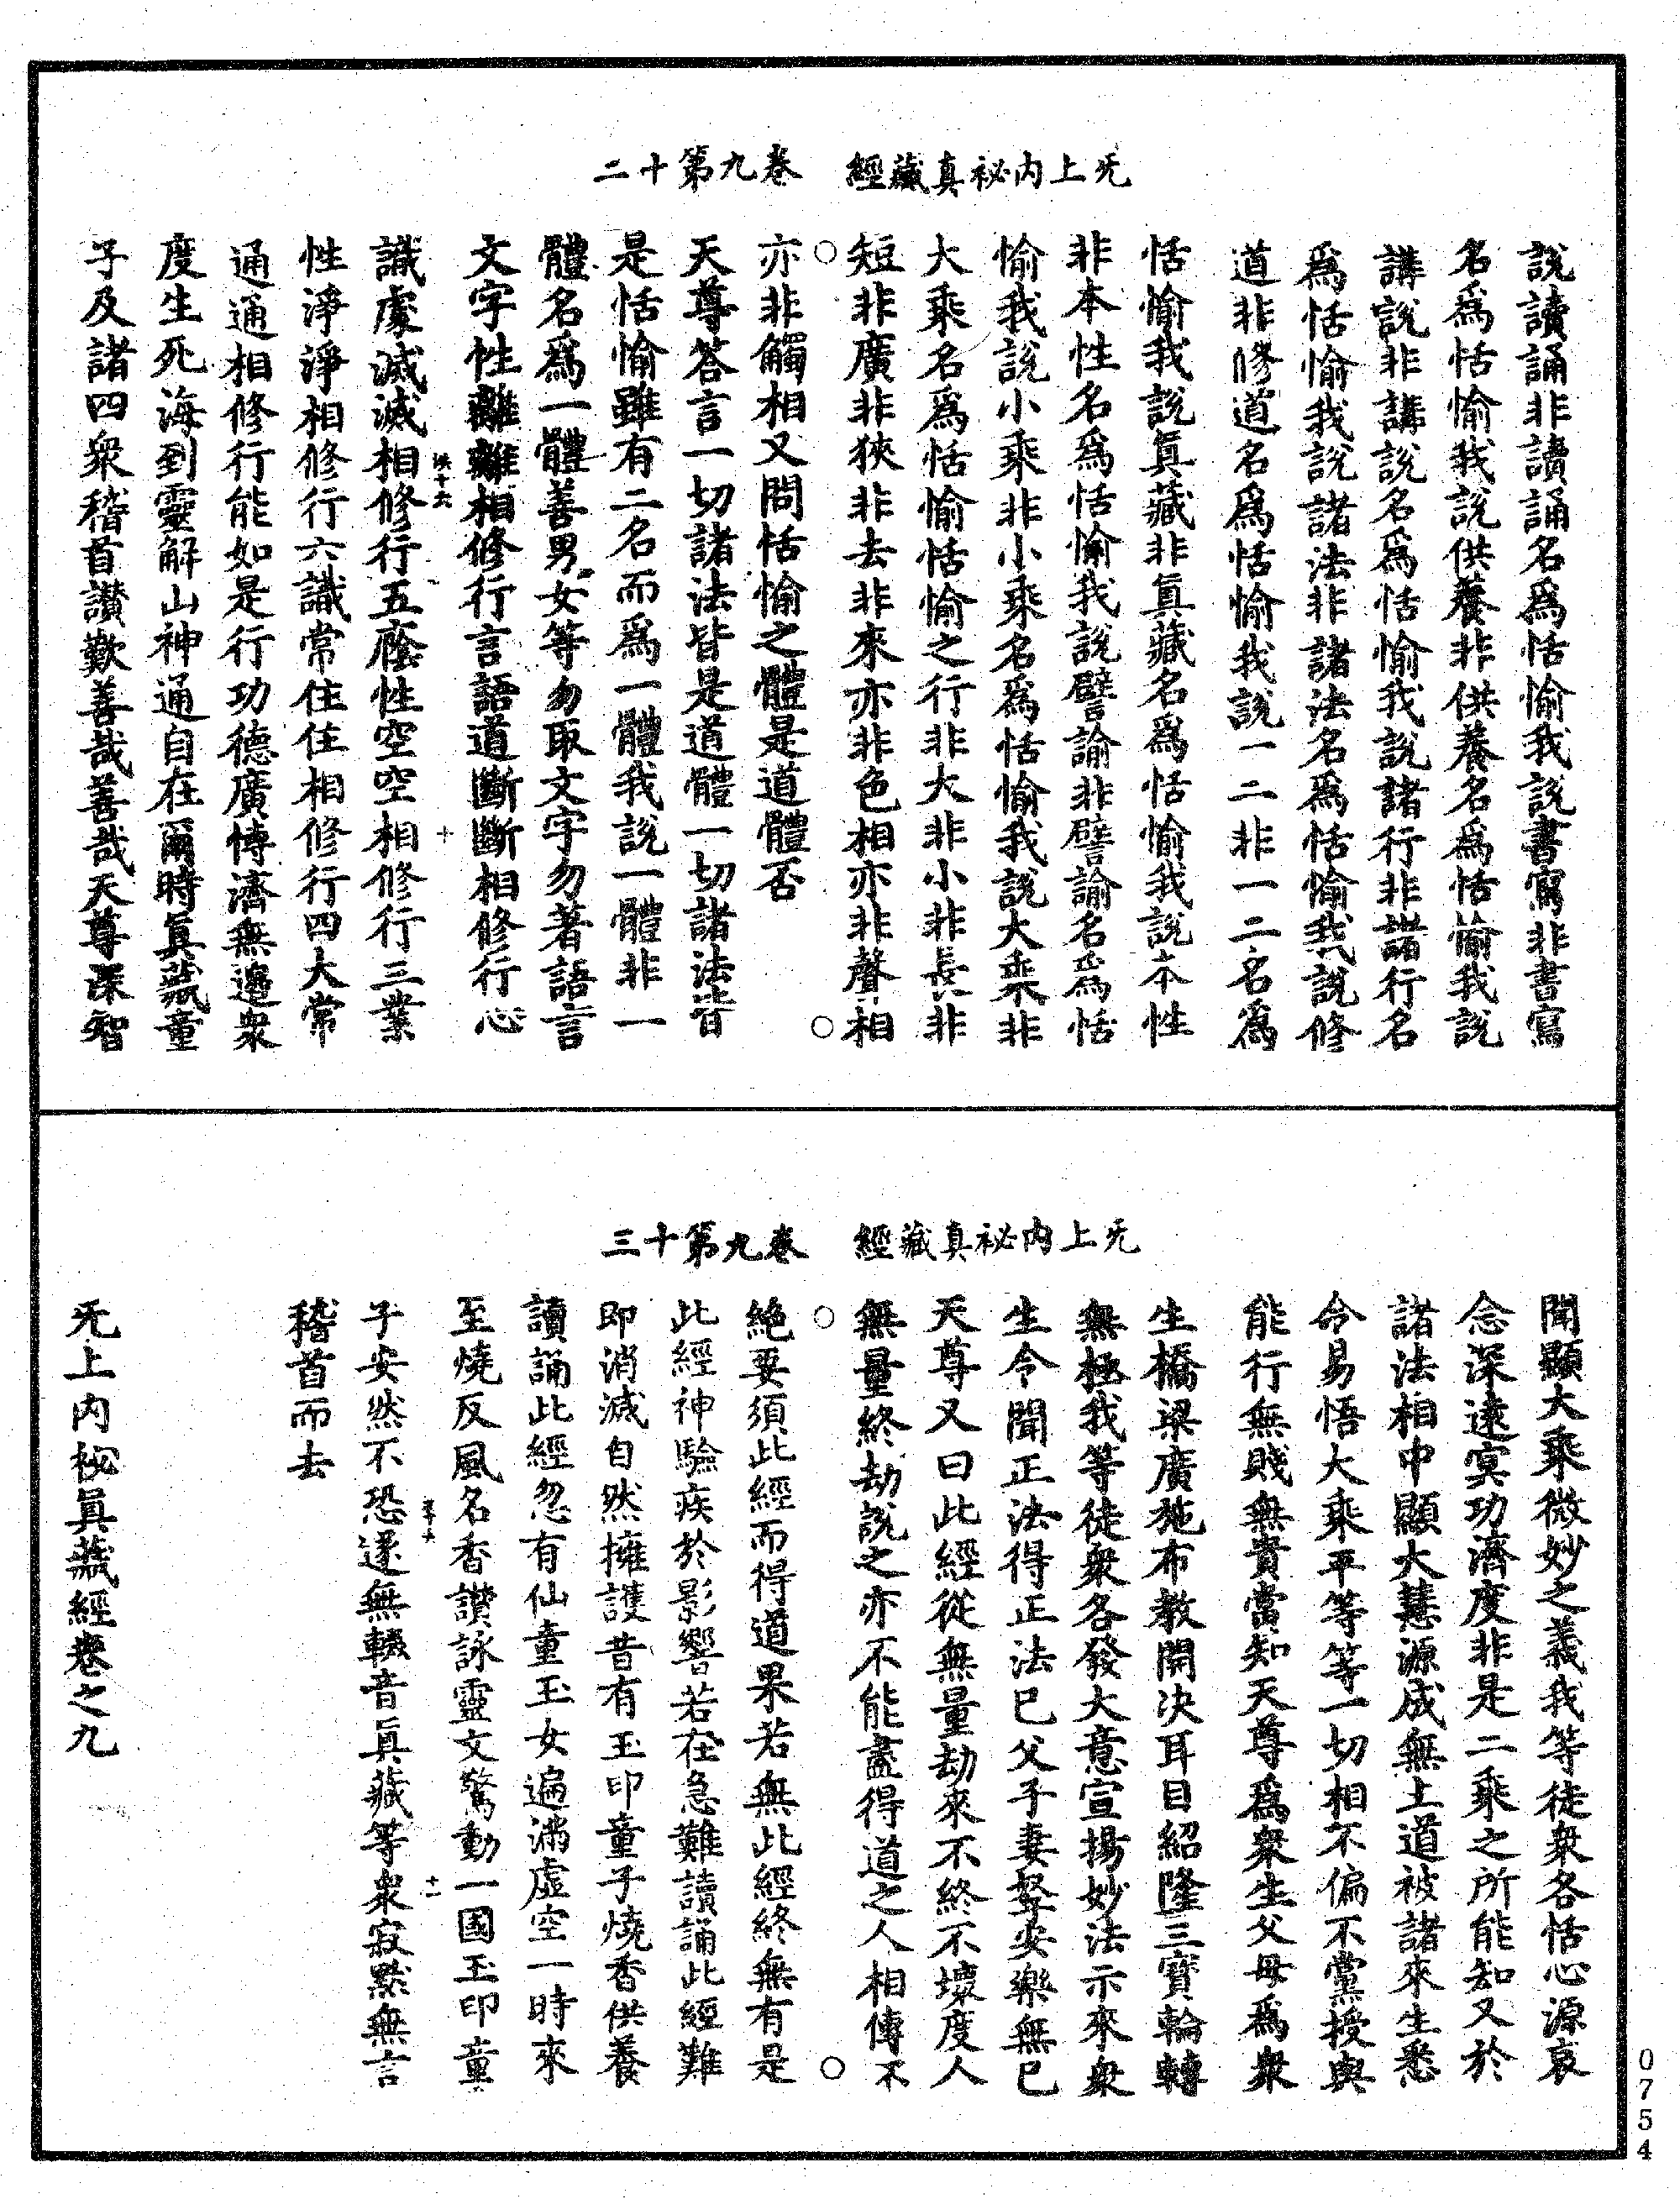 无上内祕真藏經　卷九第十二
說讀誦非讀誦名爲恬愉我說書寫非書寫
名爲恬愉我說供養非供養名爲恬愉我說
講說非講說名爲恬愉我說諸行非諸行名
爲恬愉我說諸法非諸法名爲恬愉我說修
道非修道名爲恬愉我說一二非一二名爲
恬愉我說真藏非真藏名爲恬愉我說本性
非本性名爲恬愉我說譬諭非譬諭名爲恬
愉我說小乘非小乘名爲恬愉我說大乘非
大乘名爲恬愉恬愉之行非大非小非長非
短非廣非狹非去非來亦非色相亦非聲相
亦非觸相又問恬愉之體是道體否
天尊答言一切諸法皆是道體一切諸法皆
是恬愉雖有二名而爲一體我說一體非一
體名爲一體善男女等勿取文字勿著語言
文字性離離相修行言語道斷斷相修行心
識處滅滅相修行五廕性空空相修行三業
性淨淨相修行六識常住住相修行四大常
通通相修行能如是行功德廣博濟無邊衆
度生死海到靈解山神通自在爾時真藏童
子及諸四衆稽首讃歎善哉善哉天尊深智
无上内祕真藏經　卷九第十三
聞顯大乘微妙之義我等徒衆各恬心源哀
念深遠冥功濟度非是二乘之所能知又於
諸法相中顯大慧源成無上道被諸來生悉
令易悟大乘平等等一切相不偏不黨授與
能行無賤無貴當知天尊爲衆生父母爲衆
生橋梁廣施布教開決耳目紹隆三寶輪轉
無極我等徒衆各發大意宣揚妙法示來衆
生令聞正法得正法已父子妻孥安樂無已
天尊又曰此經從無量劫來不終不壞度人
無量終劫說之亦不能盡得道之人相傳不
絶要須此經而得道果若無此經終無有是
此經神驗疾於影響若在急難讀誦此經難
即消滅自然擁護昔有玉印童子燒香供養
讀誦此經忽有仙童玉女遍滿虛空一時來
至燒反風名香讃詠靈文驚動一國玉印童
子安然不恐遂無輟音真藏等衆寂默無言
稽首而去
无上内祕真藏經卷之九
0754